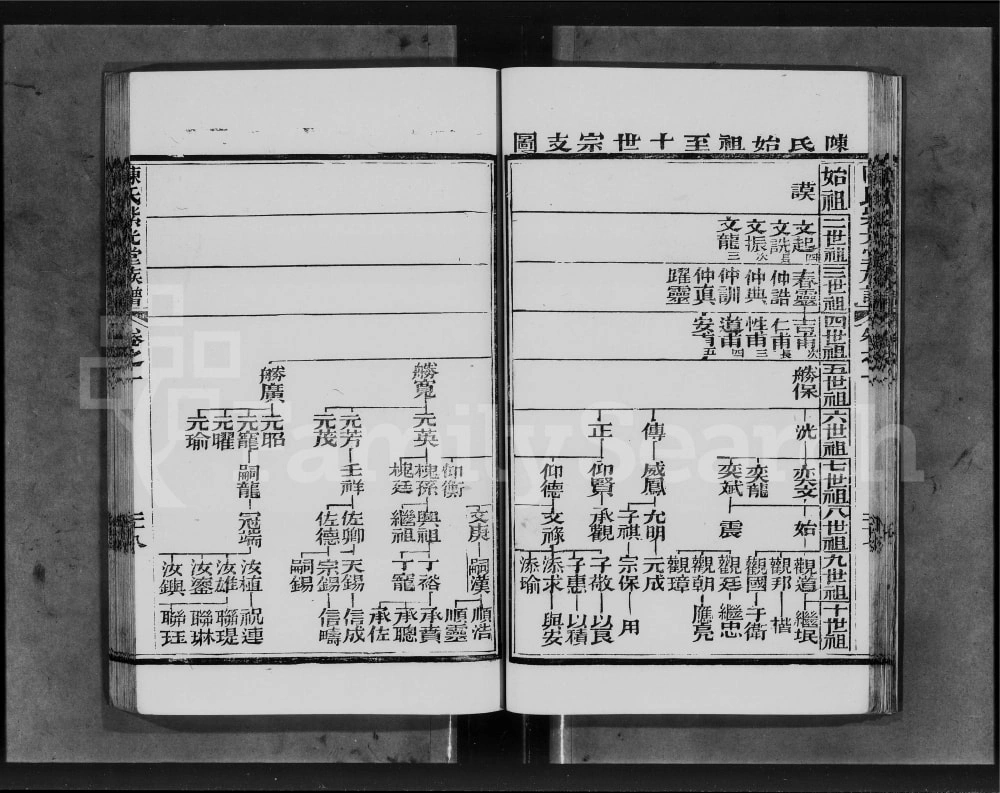 陳氏始祖至十世宗支圖
始祖 二世祖 三世祖 四世祖 五世祖 六世祖 七世祖 八世祖 九世祖 十世祖
謨
文起四 文詵長 文振次 文龍三
春靈 仲誥 仲典 仲訓 仲真 躍靈
吉甫次 仁甫長 性甫三 道甫四 安甫五
勝保
洸 傳 正
奕龍 奕斌 威鳳 仰賢 仰德
始 震 允明 子祺 承觀 文祿
觀道 觀邦 觀國 觀廷 觀朝 觀璋 元成 宗保 子敬 子惠 添求 添瑜
繼垊 楷 于衛 繼忠 應亮 用 以良 以積 與安
勝寬 勝廣
元英 元芳 元茂 元昭 元寵 元曜 元瑜
仰衡 槐孫 槐廷 壬祥 嗣龍
文庚 興祖 繼祖 佐卿 佐德 冠端
嗣漢 丁裕 丁寵 天錫 宗錫 嗣錫 汝植 汝雄 汝鑾 汝興
順浩 順靈 承賁 承聰 承佐 信成 信疇 祝連 聯瑅 聯琳 聯珏
陳氏紫光堂族譜 卷之一 二十八
FamilySearch